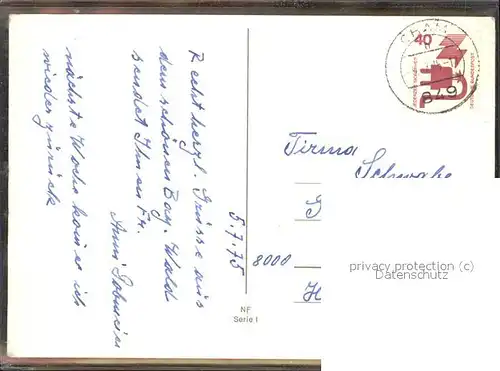 5.7.75
Recht herzl. Grüsse aus
dem schönen Bay. Wald
sendet Ihnen Fr.
Anni
nächste Woche komme ich
wieder zurück
CHAM
849
40
DEUTSCHE BUNDESPOST
Firma
Schwabe
8000
NF
Serie I
privacy protection (c)
Datenschutz